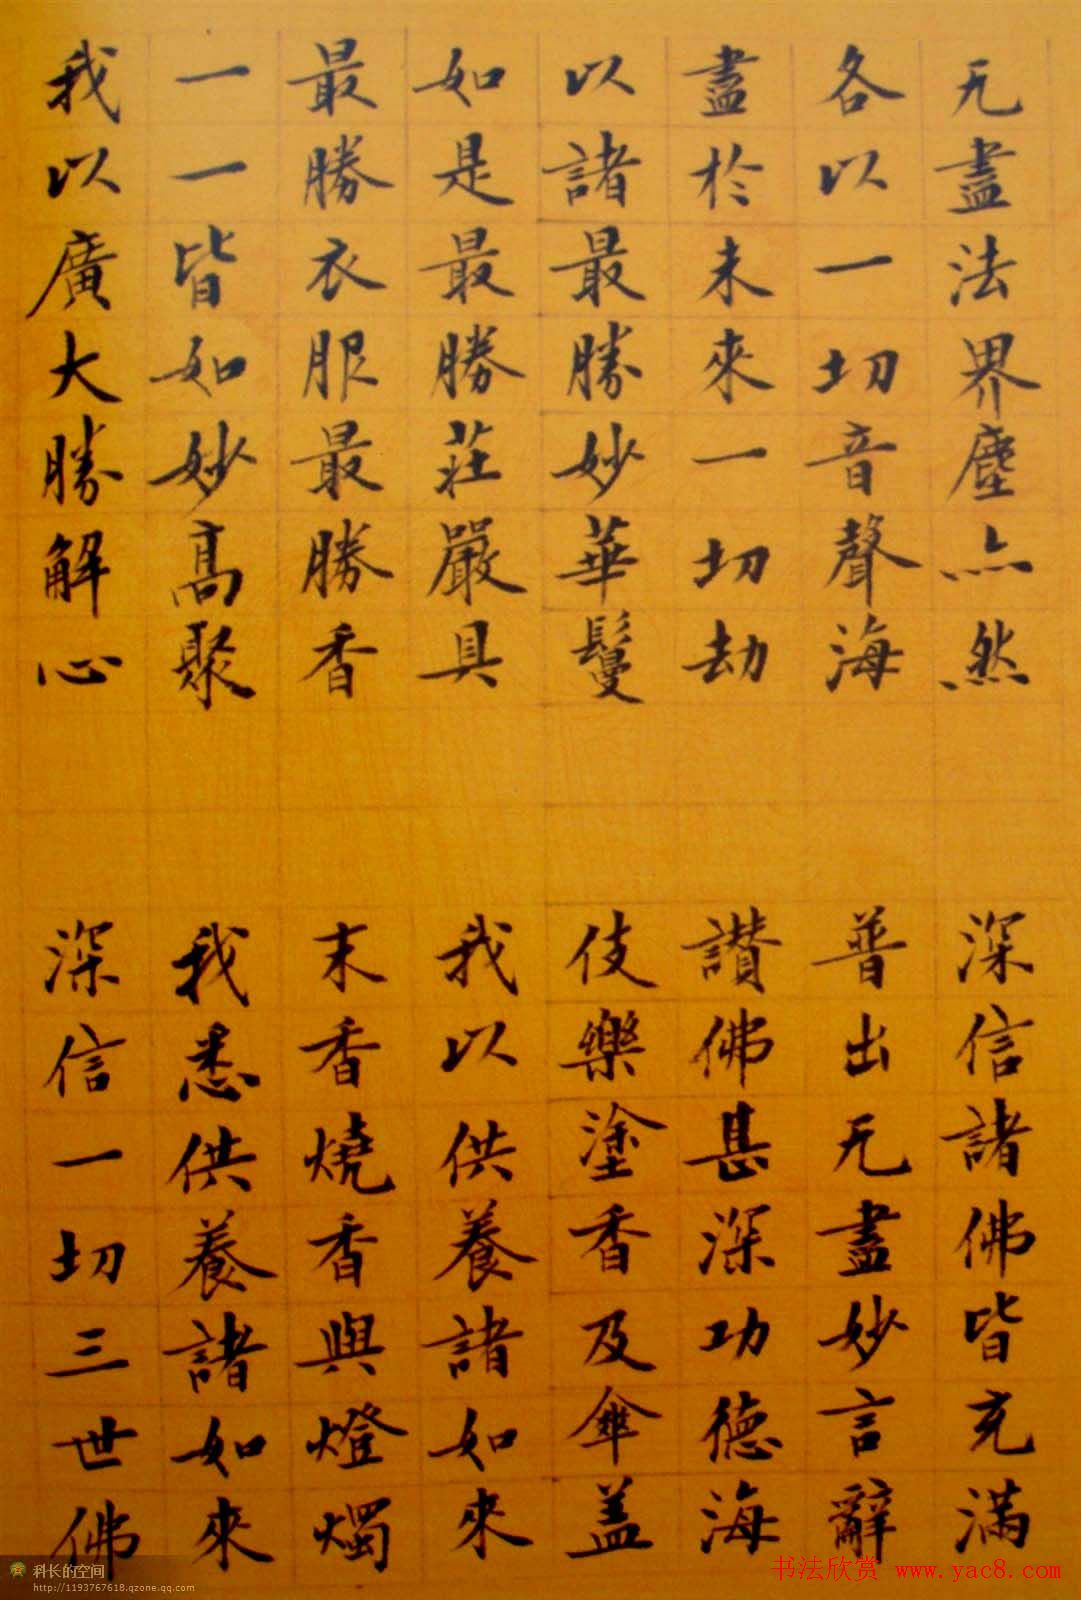 无盡法界塵亦然 深信諸佛皆充滿
各以一切音聲海 普出无盡妙言辭
盡於未來一切劫 讚佛甚深功德海
以諸最勝妙華鬘 伎樂塗香及傘盖
如是最勝莊嚴具 我以供養諸如來
最勝衣服最勝香 末香燒香與燈燭
一一皆如妙髙聚 我悉供養諸如來
我以廣大勝解心 深信一切三世佛
科长的空间
http://1193767618.qzone.qq.com
书法欣赏 www.yac8.com